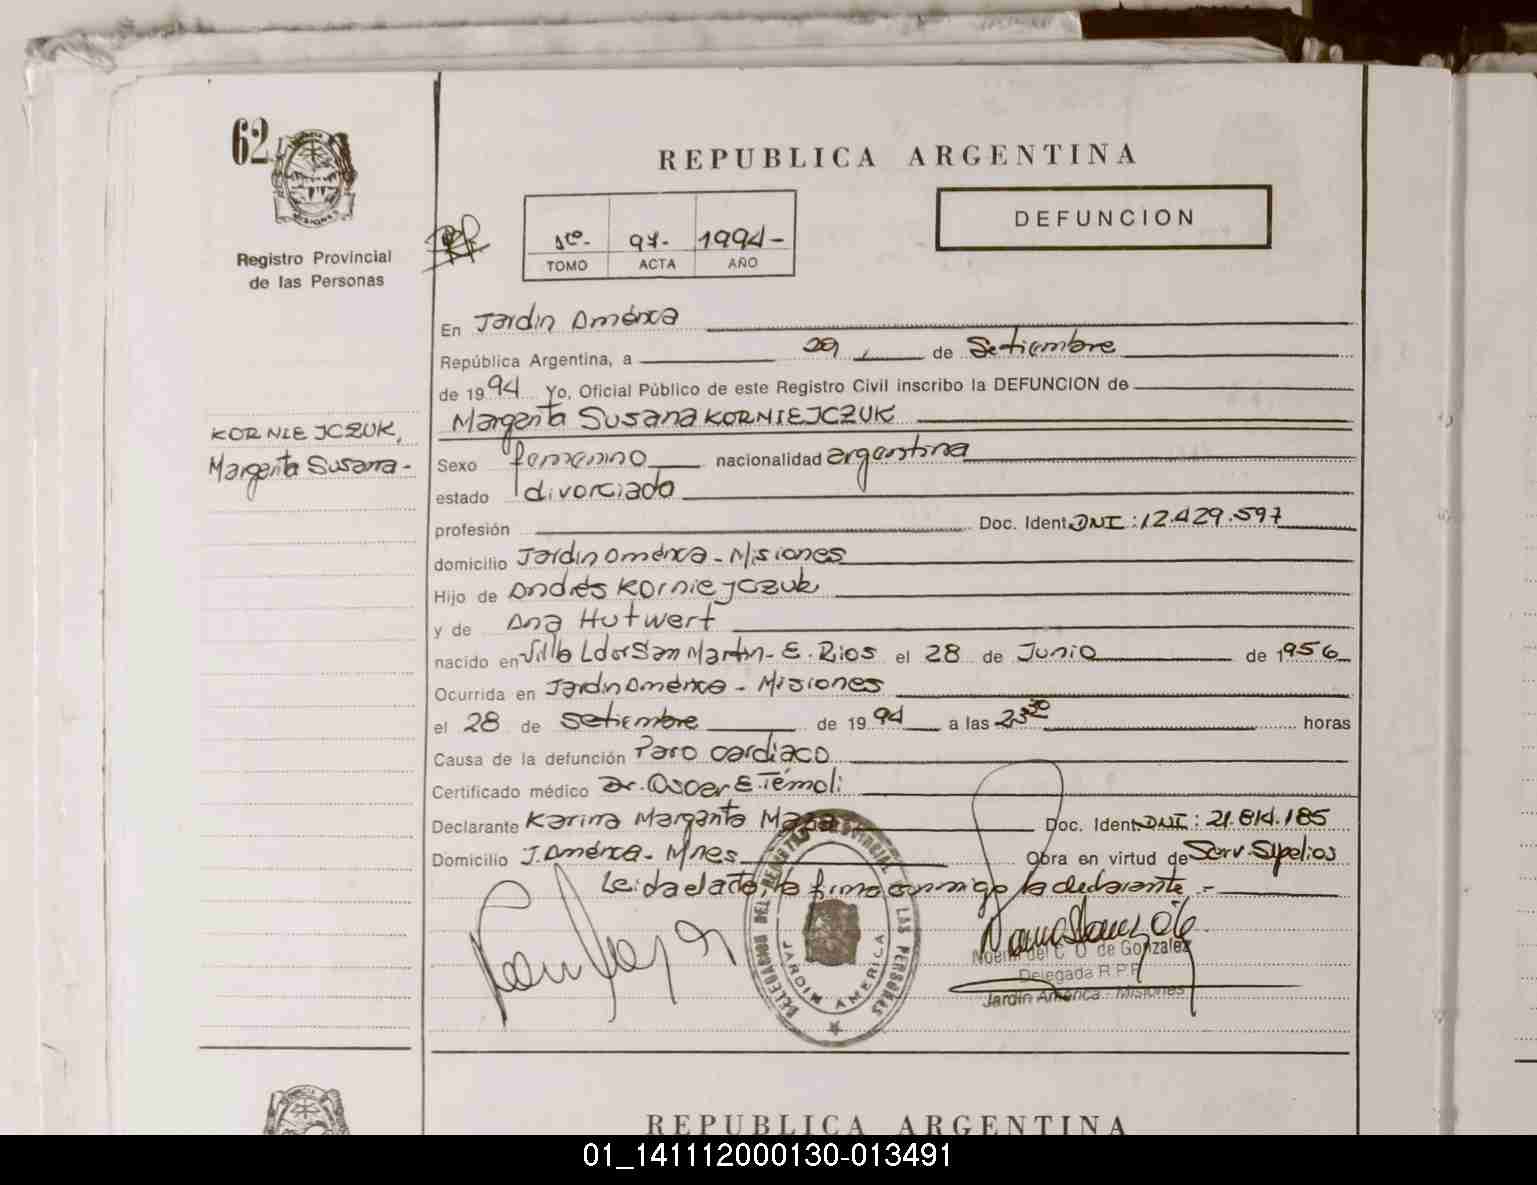 62
Registro Provincial
de las Personas
REPUBLICA ARGENTINA
DEFUNCION
1º- 97- 1994-
TOMO ACTA AÑO
En Jardin América
República Argentina, a 29, de Setiembre
de 1994 Yo, Oficial Público de este Registro Civil inscribo la DEFUNCION de
Margarita Susana KORNIEJCZUK
KORNIEJCZUK,
Margarita Susana-
Sexo femenino nacionalidad argentina
estado divorciado
profesión Doc. Ident. DNI: 12.429.597
domicilio Jardin América - Misiones
Hijo de Andrés Korniejczuk
y de Ana Hutwert
nacido en Villa Ldor San Martin - E. Rios el 28 de Junio de 1956
Ocurrida en Jardin América - Misiones
el 28 de Setiembre de 1994 a las 23 30 horas
Causa de la defunción Paro cardiaco
Certificado médico Dr. Oscar E. Témoli
Declarante Karina Margarita Doc. Ident. DNI: 21.814.185
Domicilio J. América - Mnes Obra en virtud de Serv. Sepelios
Leida el acta, la firma conmigo la declarante.-
DELEGACION DEL REGISTRO PROVINCIAL DE LAS PERSONAS
JARDIN AMERICA
Noemi del C. O. de Gonzalez
Delegada R.P.P.
Jardin America - Misiones
REPUBLICA ARGENTINA
01_141112000130-013491